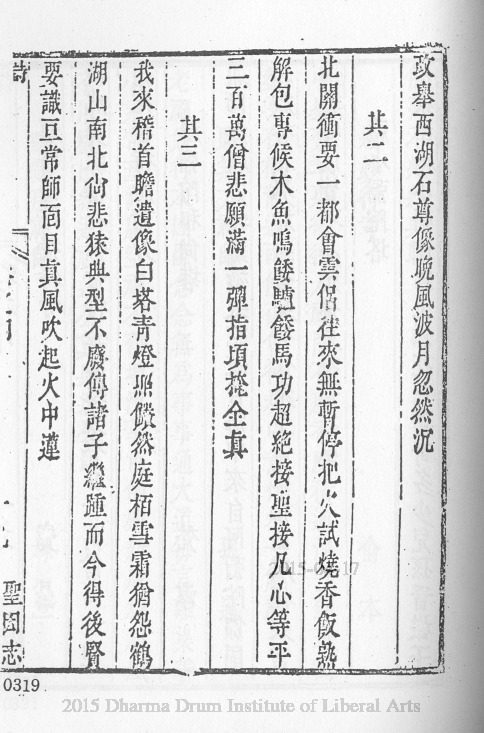 政舉西湖石尊像晚風波月忽然沉
其二
北關衝要一都會雲侶往來無暫停把火試燒香飯熟
解包專候木魚鳴餧驢餧馬功超絕接聖接凡心等平
三百萬僧悲願滿一彈指頃掩全真
其三
我來稽首瞻遺像白塔青燈照儼然庭栢雪霜猶怨鶴
湖山南北尙悲猿典型不廢傳諸子繼踵而今得後賢
要識亘常師面目眞風吹起火中蓮
詩
聖因志
0319
2015-0 17
2015 Dharma Drum Institute of Liberal Arts